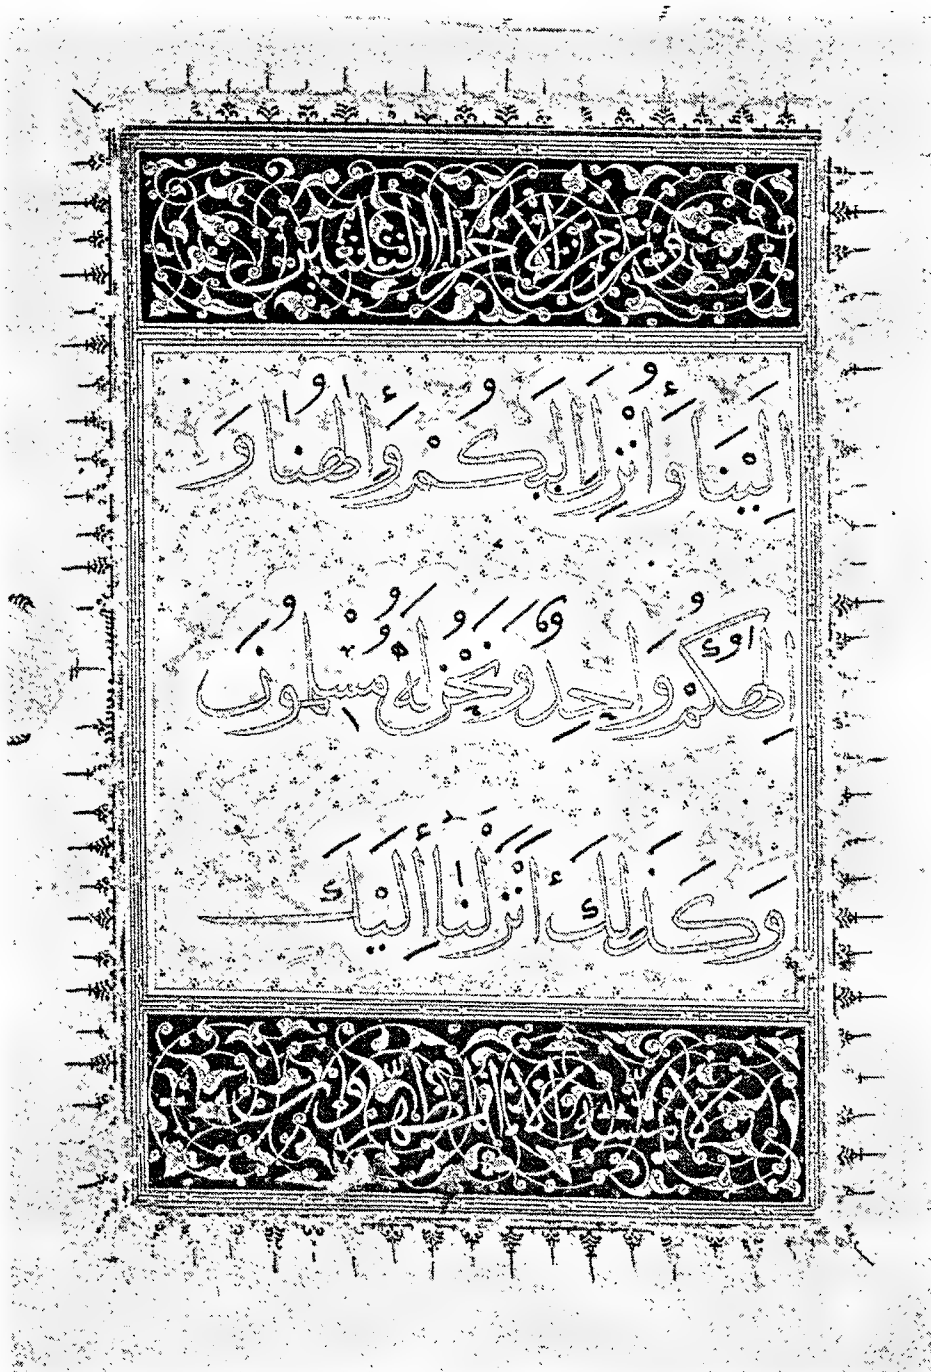 إِلَيْنَا وَأُنْزِلَ إِلَيْكُمْ وَإِلٰهُنَا وَ
إِلٰهُكُمْ وَاحِدٌ وَنَحْنُ لَهُ مُسْلِمُونَ
وَكَذٰلِكَ أَنْزَلْنَا إِلَيْكَ
لا يمسه الا المطهرون